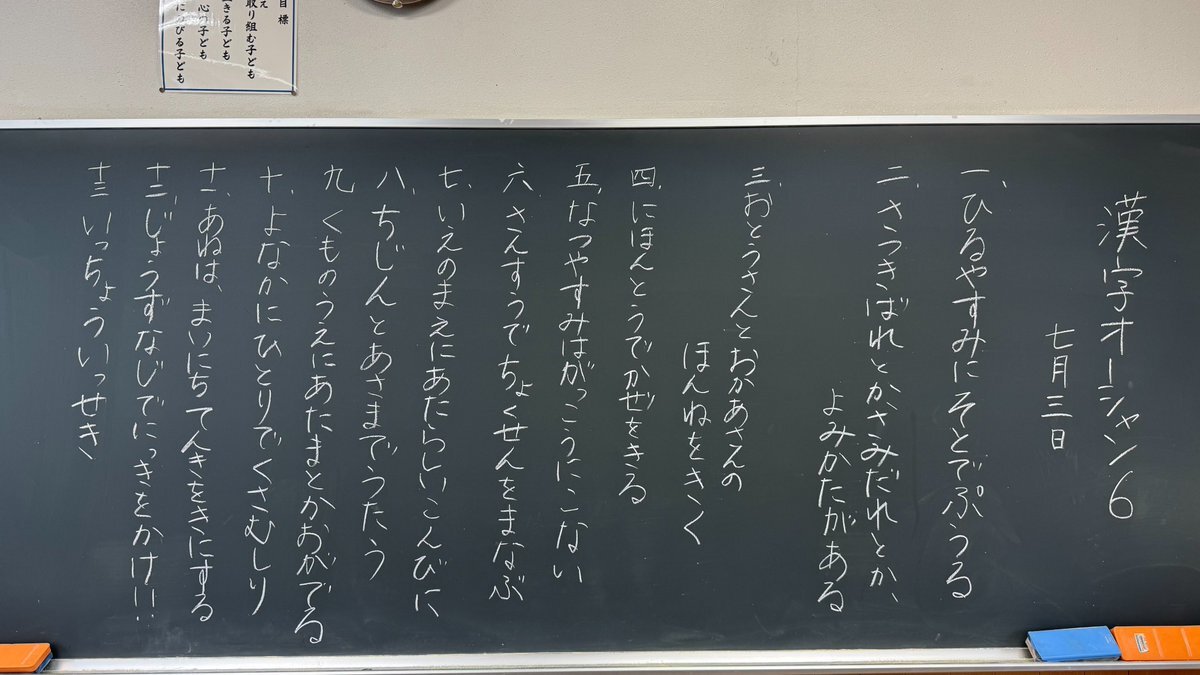 目標
取り組む子ども
きる子ども
心の子ども
にのびる子ども
漢字オーシャン6
七月三日
一、ひるやすみにそとでぷうる
二、さつきばれとかさみだれとか、
よみかたがある
三、おとうさんとおかあさんの
ほんねをきく
四、にほんとうでかぜをきる
五、なつやすみはがっこうにこない
六、さんすうでちょくせんをまなぶ
七、いえのまえにあたらしいこんびに
八、ちじんとあさまでうたう
九、くものうえにあたまとかおがでる
十、よなかにひとりでくさむしり
十一、あねは、まいにちてんきをきにする
十二、じょうずなじでにっきをかけ!!
十三、いっちょういっせき